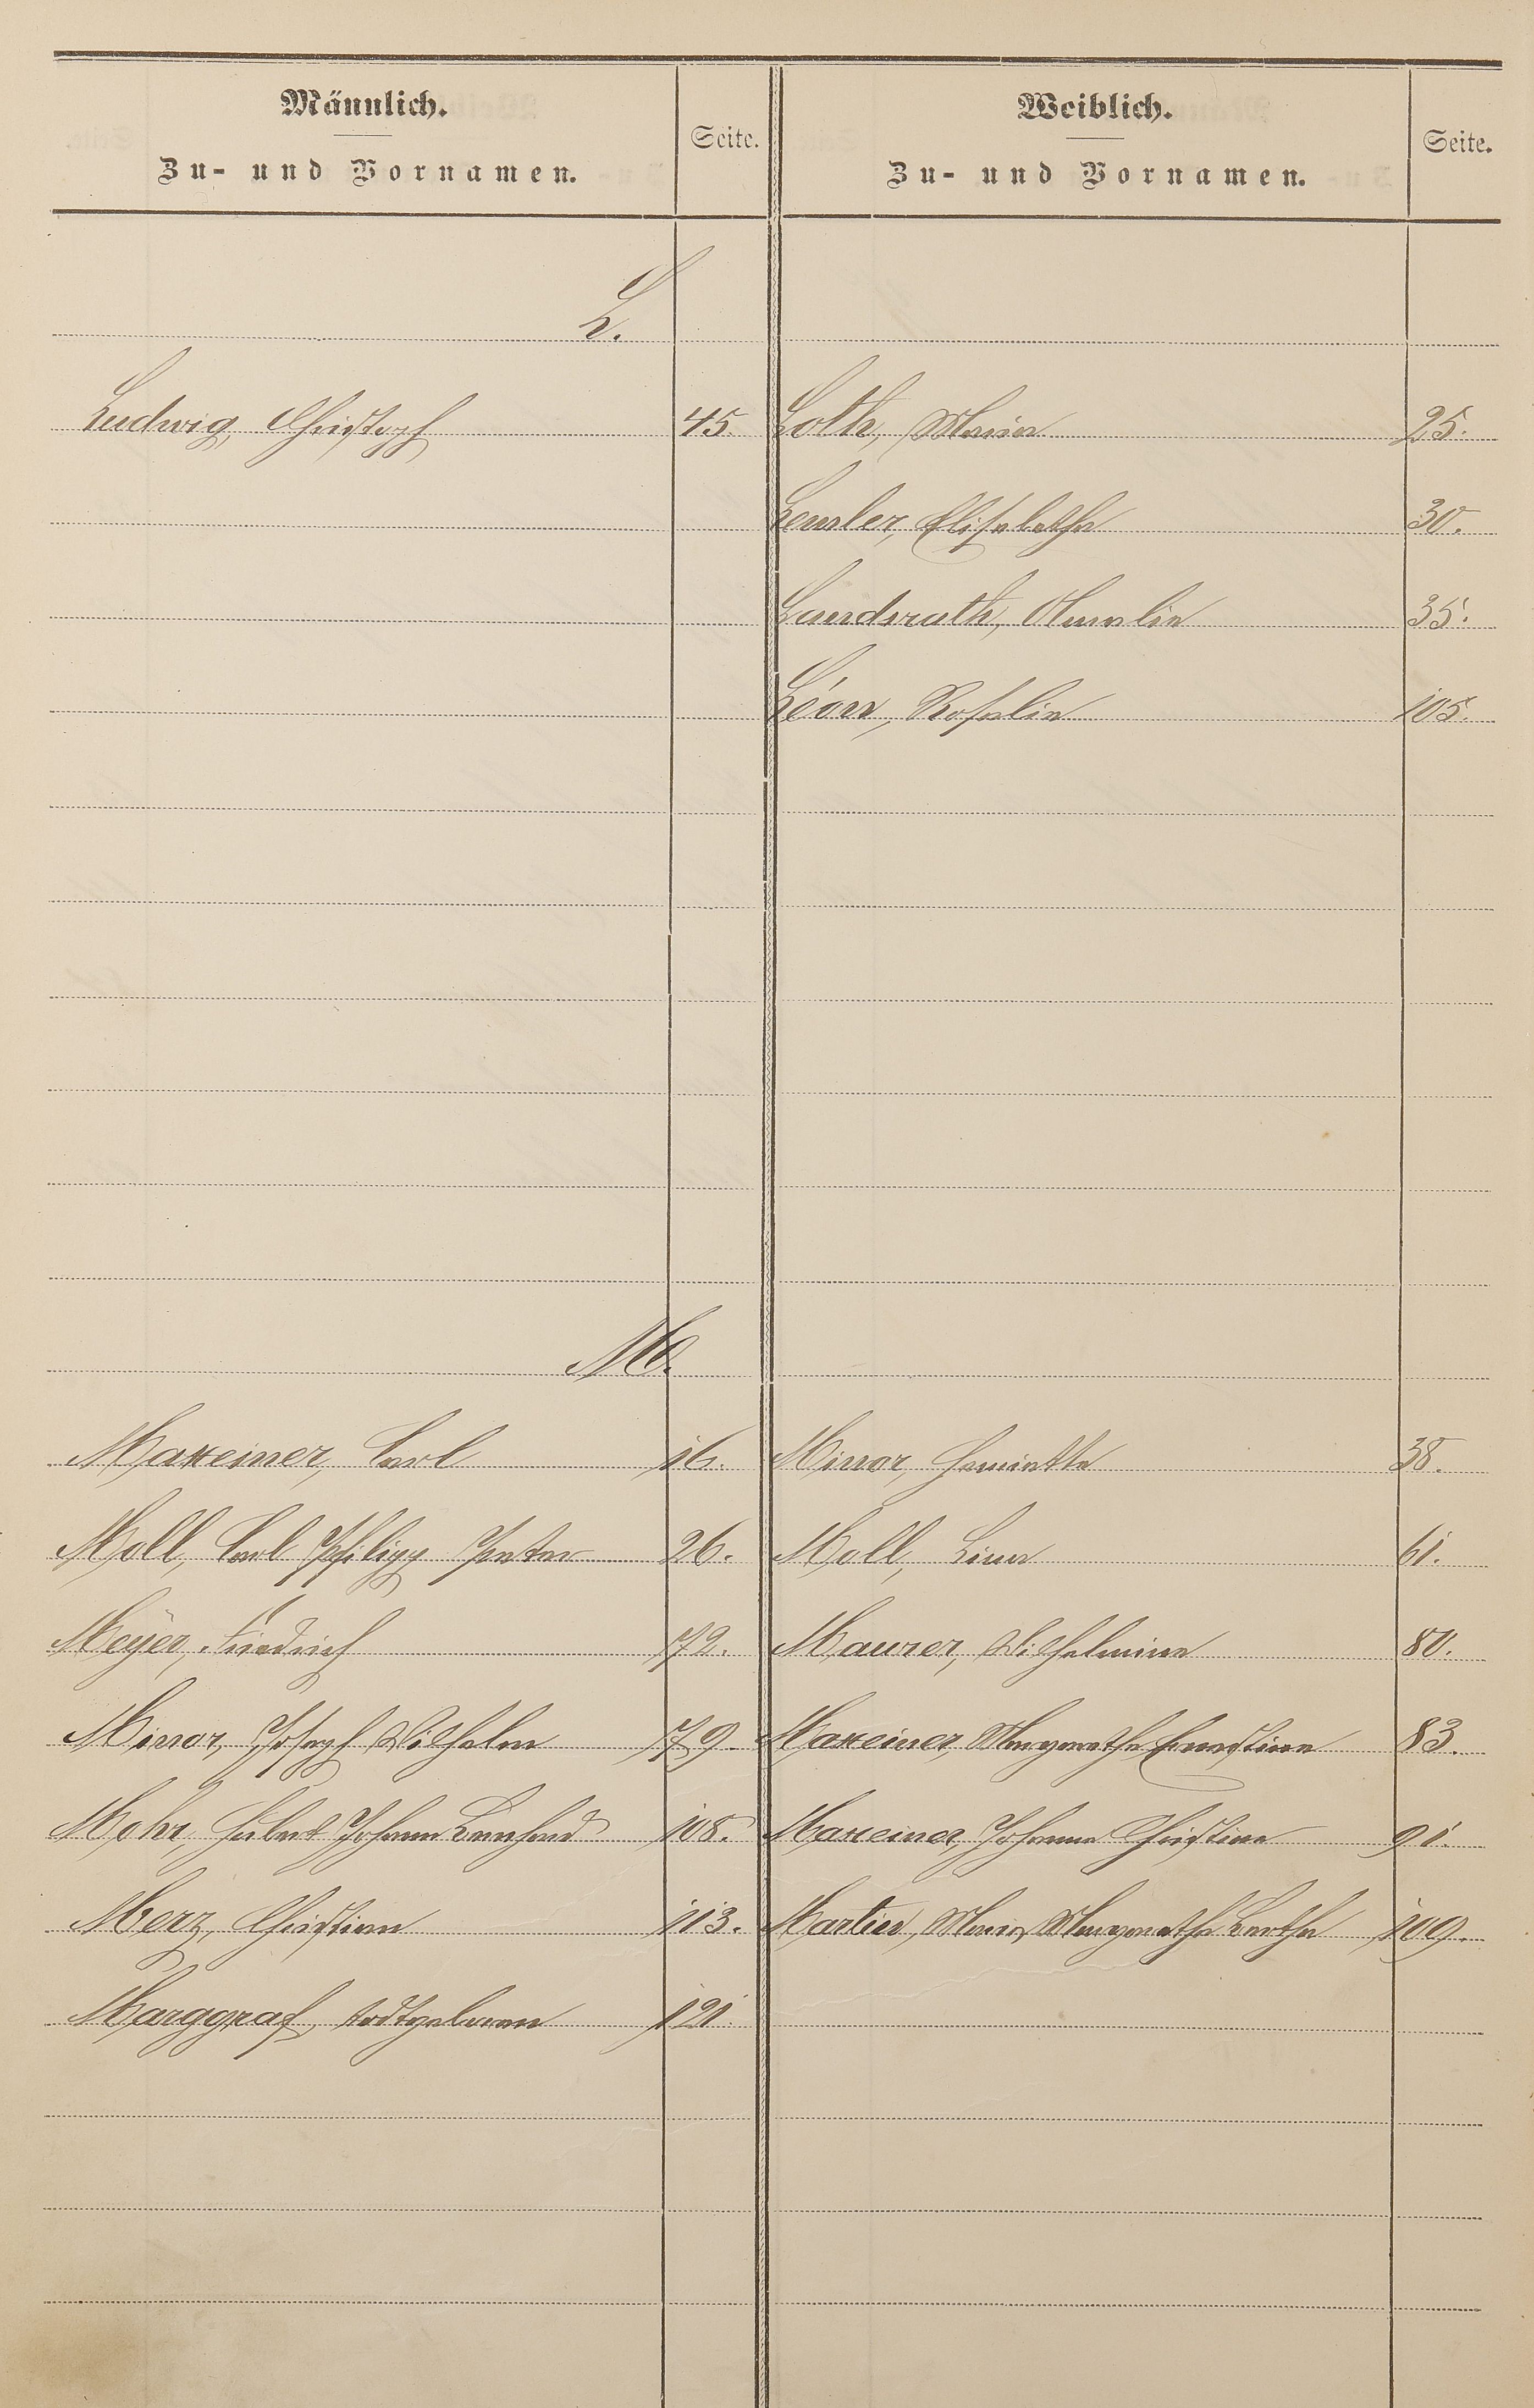 Männlich.
Zu- und Vornamen.
Seite.
Weiblich.
Zu- und Vornamen.
Seite.
L.
Ludwig, Christoph 45. Loth, Maria 25.
Lemler, Elisabetha 30.
Landrath, Amalie 35.
Léon, Rosalie 105.
M.
Maxeiner, Carl 16. Minor, Henriette 38.
Moll, Carl Philipp Peter 26. Moll, Lina 61.
Meÿer, Friedrich 72. Maurer, Wilhelmine 80.
Minor, Joseph Wilhelm 79. Maxeiner, Margarethe Ernestine 83.
Mohr, Hubert Johann Bernhard 108. Maxeiner, Johanna Christine 91.
Merz, Christian 113. Martin, Maria Margarethe Bertha 109.
Marggraf, todtgeboren 121.